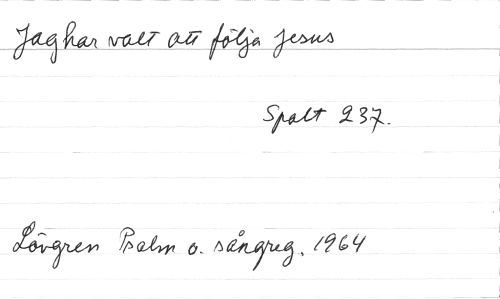 Jag har valt att följa Jesus
Spalt 237.
Lövgren Psalm o. sångreg. 1964